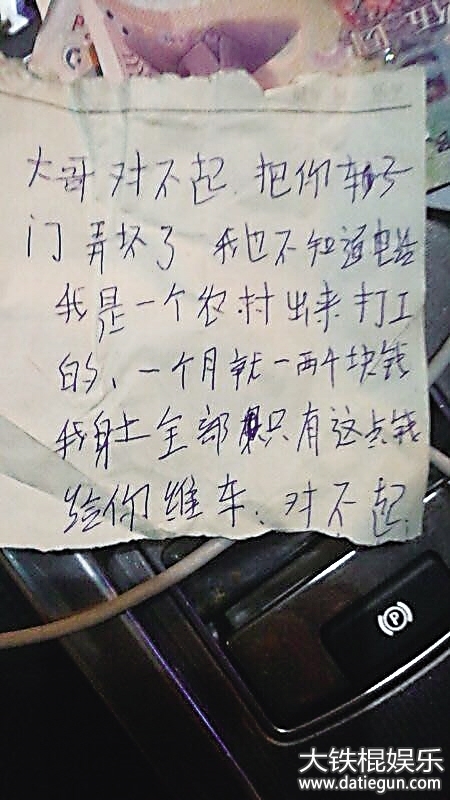 大哥对不起.把你车子
门弄坏了 我也不知道电话
我是一个农村出来打工
的、一个月就一两千块钱
我身上全部只有这点钱
给你维车、对不起.
大铁棍娱乐
www.datiegun.com